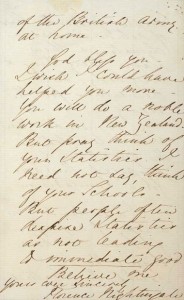 of the British Army
at home -
God bless you -
I wish I could have
helped you more -
You will do a noble
work in New Zealand
But pray think of
your Statistics I
need not say, think
of your Schools
But people often
despise statistics
as not leading
to immediate good
Believe me
yours ever sincerely
Florence Nightingale